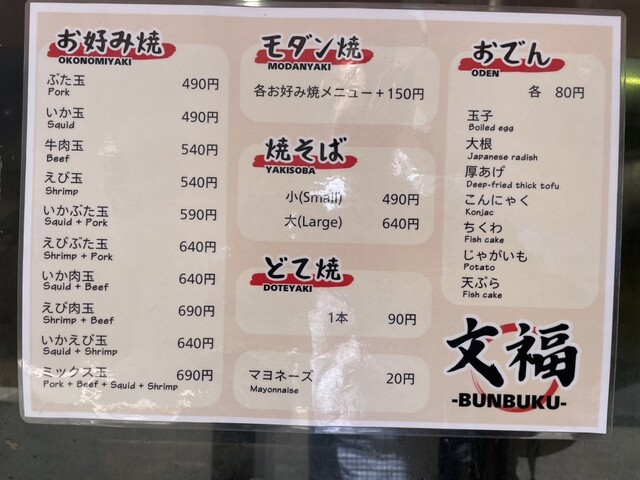 お好み焼
OKONOMIYAKI
ぶた玉 490円
Pork
いか玉 490円
Squid
牛肉玉 540円
Beef
えび玉 540円
Shrimp
いかぶた玉 590円
Squid + Pork
えびぶた玉 640円
Shrimp + Pork
いか肉玉 640円
Squid + Beef
えび肉玉 690円
Shrimp + Beef
いかえび玉 640円
Squid + Shrimp
ミックス玉 690円
Pork + Beef + Squid + Shrimp
モダン焼
MODANYAKI
各お好み焼メニュー+150円
焼そば
YAKISOBA
小(Small) 490円
大(Large) 640円
どて焼
DOTEYAKI
1本 90円
マヨネーズ 20円
Mayonnaise
おでん
ODEN
各 80円
玉子
Boiled egg
大根
Japanese radish
厚あげ
Deep-fried thick tofu
こんにゃく
Konjac
ちくわ
Fish cake
じゃがいも
Potato
天ぷら
Fish cake
文福
-BUNBUKU-